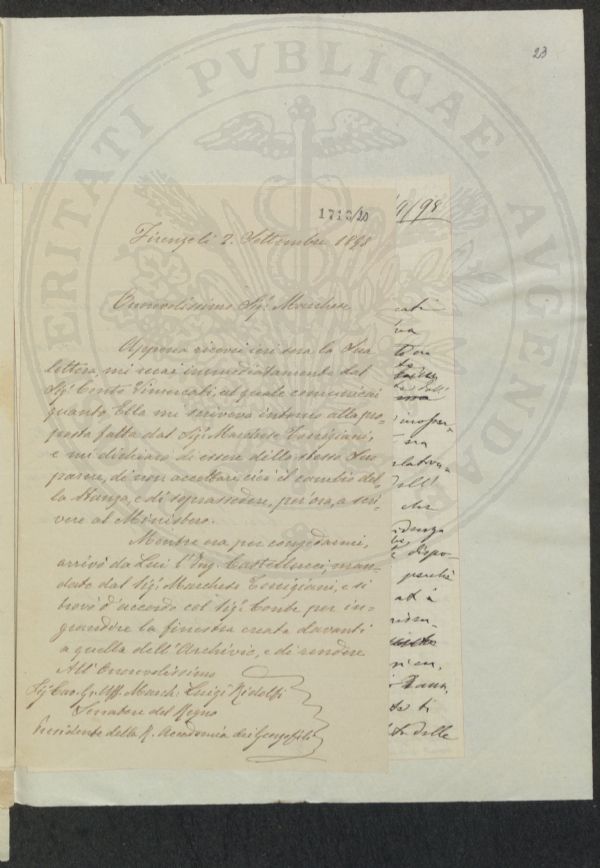 23
PROSPERITATI PVBLICAE AVGENDAE
1713/20
4/98
Firenze li 2. Settembre 1898
Onorevolissimo Sig.r Marchese
Appena ricevei ieri sera la Sua
lettera, mi recai immediatamente dal
Sig.r Conte Vimercati, al quale comunicai
quanto Ella mi scriveva intorno alla pro=
posta fatta dal Sig.r Marchese Torrigiani,
e mi dichiarò di essere dello stesso Suo
parere, di non accettare cioè il cambio del
la Stanza, e di soprassedere, per ora, a scri=
vere al Ministero.
Mentre era per congedarmi,
arrivò da Lui l'Ing. Castellucci man=
dato dal Sig.r Marchese Torrigiani, e si
trovò d'accordo col Sig.r Conte per in=
grandire la finestra creata davanti
a quella dell'Archivio, e di rendere
All'Onorevolissimo
Sig.r Cav. Gr. Uff. March. Luigi Ridolfi
Senatore del Regno
Presidente della R. Accademia dei Georgofili
dell'
che
dispo=
perchè
ti
delle